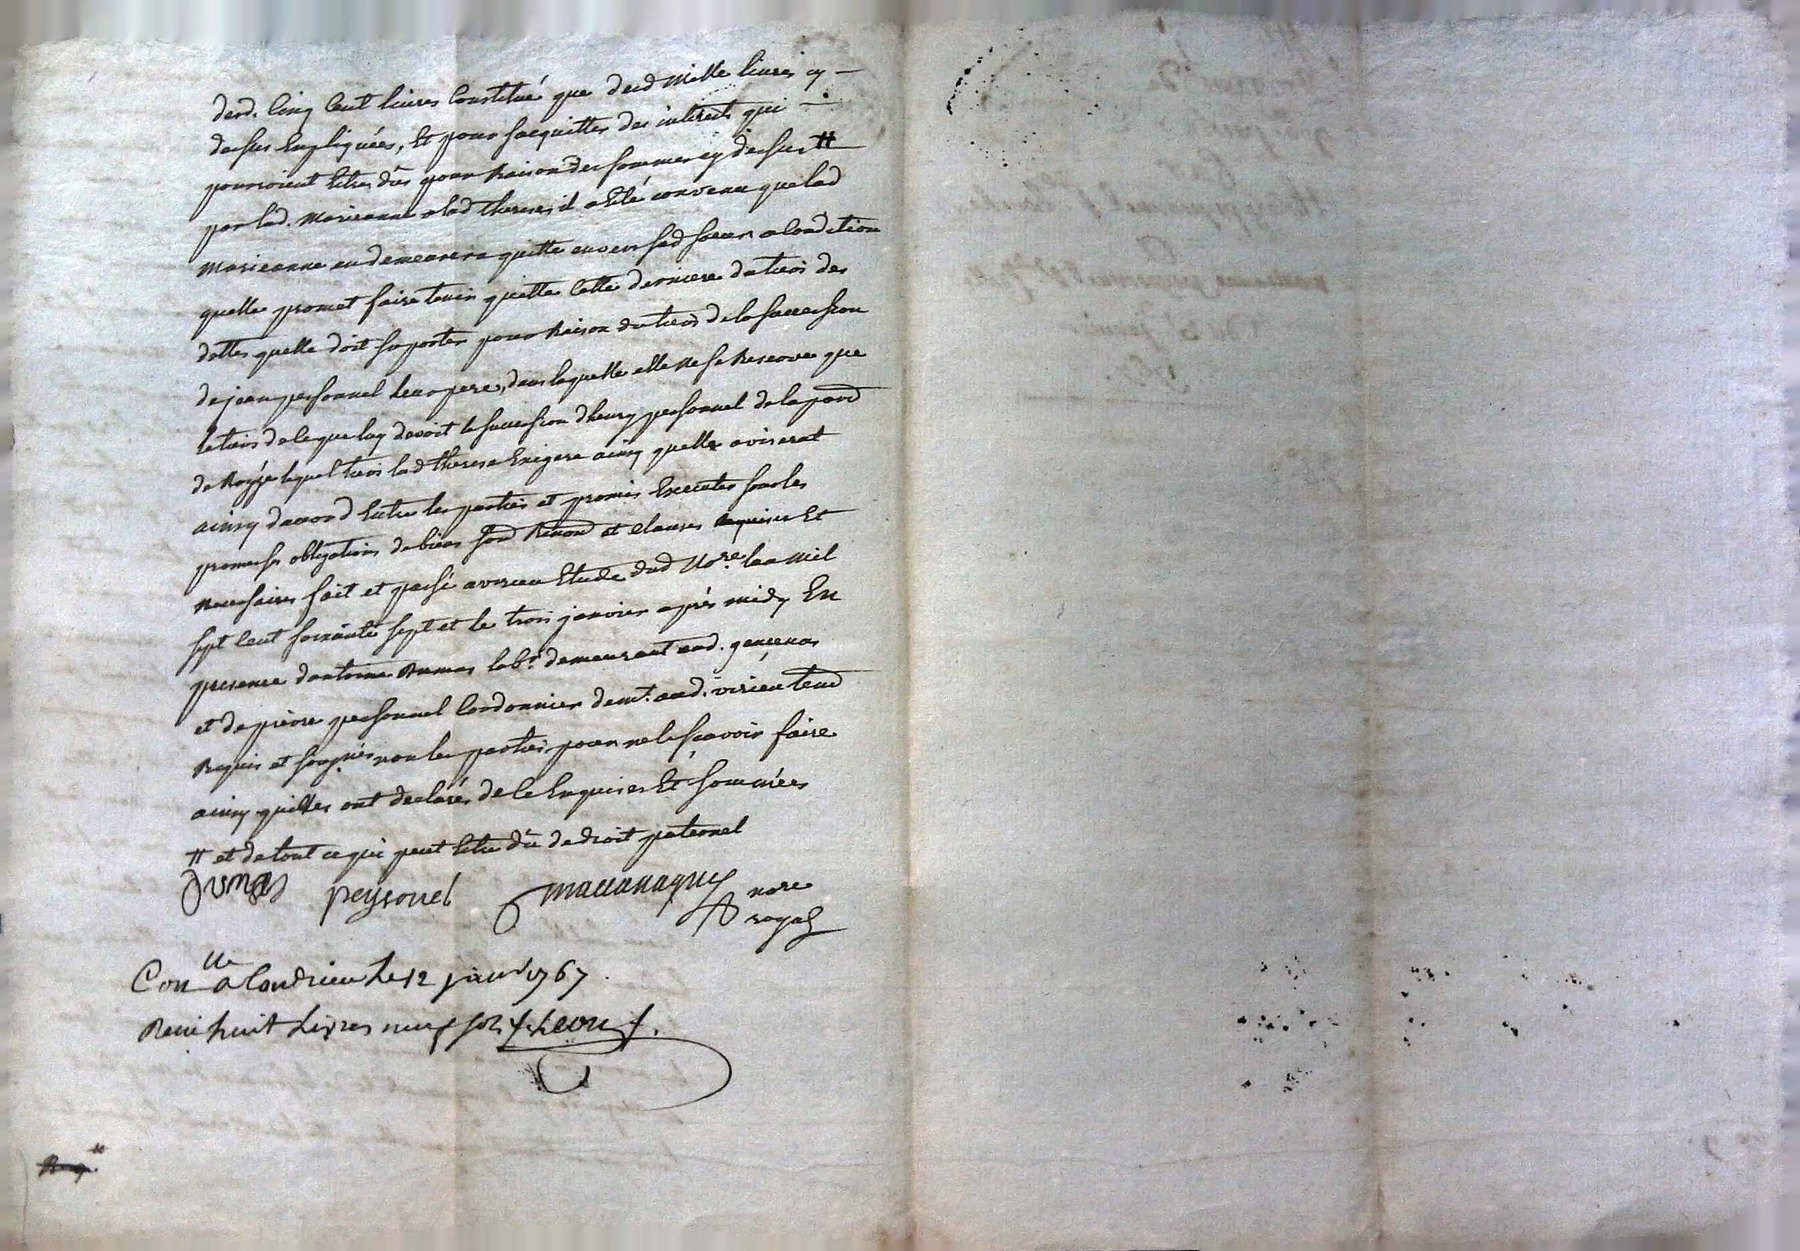 desd. Cinq Cent livres Constitué que desd Mille livres cy —
dessus Expliquées, Et pour sacquitter des interets qui —
pourroient Estre dûs pour Raison des sommes cy dessus #
par lad. Marieanne a lad therese il a Eté convenu que lad
Marieanne en demeurera quitte envers sad soeur a condition
quelle promet faire tenir quitte Cette derniere du tiers des
dettes quelle doit suporter pour Raison du tiers de la succession
de jean personnel leur pere, dans laquelle elle ne se Reserve que
le tiers de ce que luy devoit la succession dheury personnel de la
de lequel tiers lad therese Exigera ainsy quelle aviserat
ainsy dacord Entre les parties et promis Executer sous les
promesses obligations de biens fond Renond et clauses Requises Et
Necessaires fait et passé a verieu Etude dud No.re lan Mil
sept Cent soixante sept et le trois janvier après midy En
presence dantoine Dumas lab.r demeurant aud.
et de pierre personnel Cordonnier dem.t aud. virieu
Requis et soupsignés non les parties pour ne le sçavoir faire
ainsy quelles ont declarés de ce Enquises Et sommées
# et de tout ce qui peut Estre dû de droit paternel
Dumas peyssonel nore
royal
Con.lle a Condrieu Le 12 janv.r 1767.
Receu huit Livres neuf sols